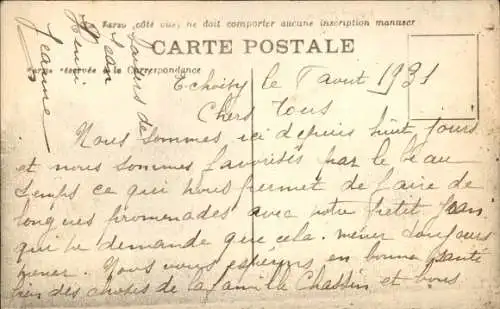 (côté vue) ne doit comporter aucune inscription manuscr
CARTE POSTALE
réservée à la Correspondance
Echoisy le 1 aout 1931
Chers Tous
Nous sommes ici depuis huit jours
et nous sommes favorisés par le beau
temps ce qui nous permet de faire de
longues promenades avec notre petit Jean
qui ne demande que cela. mener toujours
mener. Nous vous espérons en bonne santé
bien des choses de la famille Chassin et vous
Saluts de
Jean
Henri
Jeanne